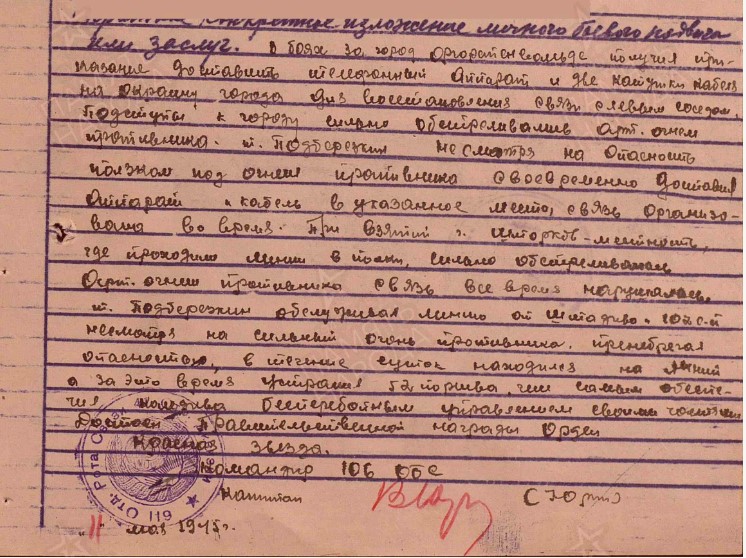 Краткое конкретное изложение личного боевого подвига
или заслуг. В боях за город получил при-
казание доставить телефонный аппарат и две катушки кабеля
на окраину города для восстановления связи с левым соседом.
Подступы к городу сильно обстреливались арт. огнем
противника. т. Подберезкин несмотря на опасность
ползком под огнем противника своевременно доставил
аппарат и кабель в указанное место, связь организо-
вана во время. При взятии г. местность,
где проходили линии сильно обстреливалась
арт. огнем противника связь все время нарушалась
т. Подберезкин обслуживал линию от
несмотря на сильный огонь противника. пренебрегая
опасностью, в течение суток находился на линии
а за это время устранил 52 порыва, чем самым обеспе-
чил бесперебойным управлением своими частями
Достоен правительственной награды Орден
Красная звезда.
Командир 106 ОРС
Капитан
"11" мая 1945г.